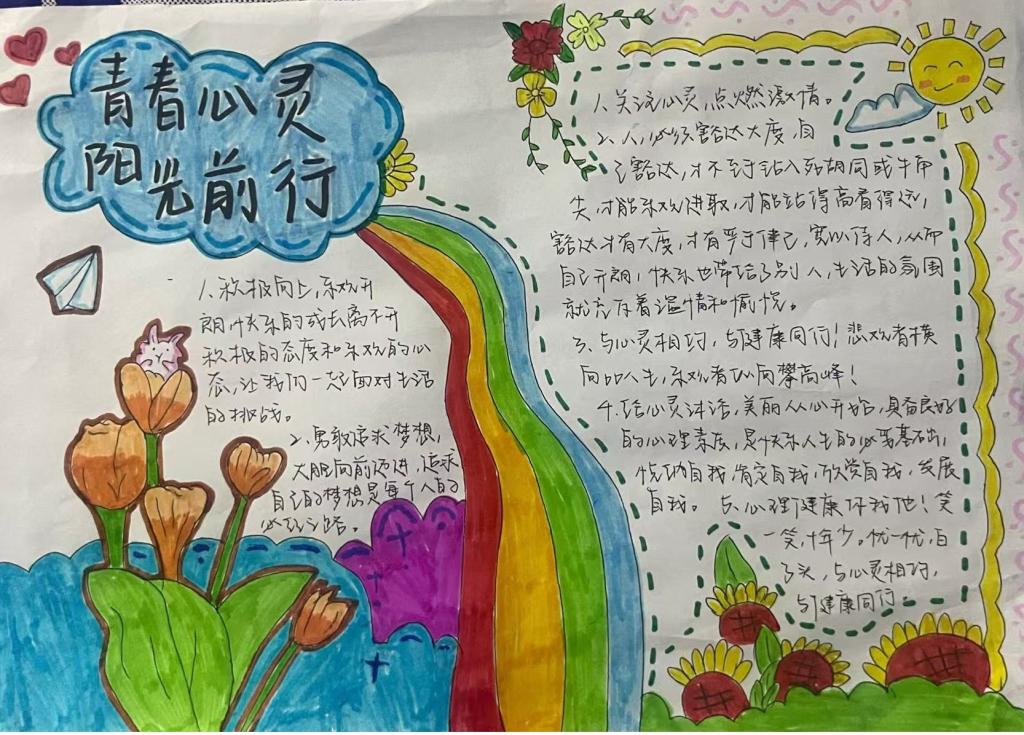 青春心灵
阳光前行
1、积极向上,乐观开
朗,快乐的成长离不开
积极的态度和乐观的心
态,让我们一起面对生活
的挑战。
2、勇敢追求梦想,
大胆向前迈进,追求
自己的梦想是每个人的
必经之路。
1、关注心灵,点燃激情。
2、人必须豁达大度,自
己豁达,才不至于钻入死胡同或牛角
尖,才能乐观进取,才能站得高看得远,
豁达才有大度,才有严于律己,宽以待人,从而
自己开朗,快乐也带给了别人,生活的氛围
就充斥着温情和愉悦。
3、与心灵相约,与健康同行!悲观者横
向叹人生,乐观者纵向攀高峰!
4、给心灵沐浴,美丽从心开始,具备良好
的心理素质,是快乐人生的必要基础,
悦纳自我,肯定自我,欣赏自我,发展
自我。5、心理健康你我他!笑
一笑,十年少。忧一忧,白
了头,与心灵相约,
与健康同行。